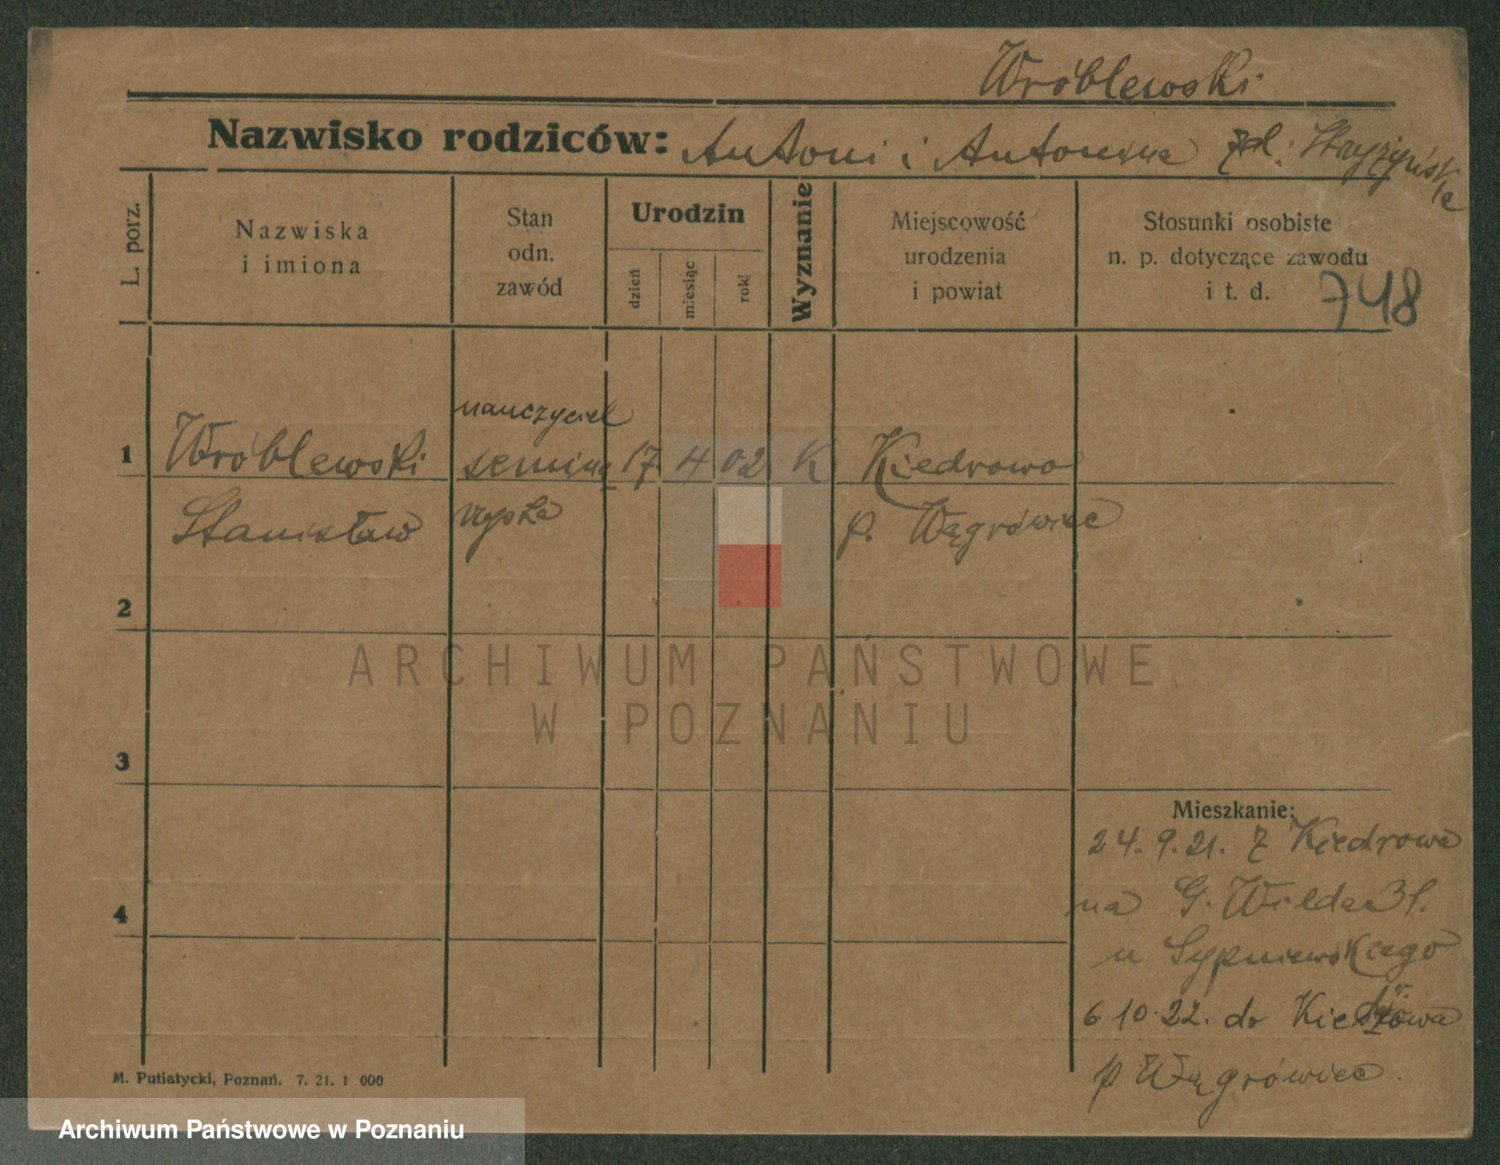 Wróblewski
Nazwisko rodziców: Antoni i Antonina
L. porz.
Nazwiska
i imiona
Stan
odn.
zawód
Urodzin
dzień
miesiąc
rok
Wyznanie
Miejscowość
urodzenia
i powiat
Stosunki osobiste
n. p. dotyczące zawodu
i t. d.
748
nauczyciel
1 Wróblewski 17 4 02 K Kiedrowo
Stanisław p. Wągrówiec
2
ARCHIWUM PAŃSTWOWE
W POZNANIU
3
Mieszkanie:
24.9.21. z Kiedrowa
4
na G. Wilda 31.
u Sypniewskiego
6 10.22. do
p Wągrówiec.
M. Putiatycki, Poznań. 7. 21. 1 000
Archiwum Państwowe w Poznaniu